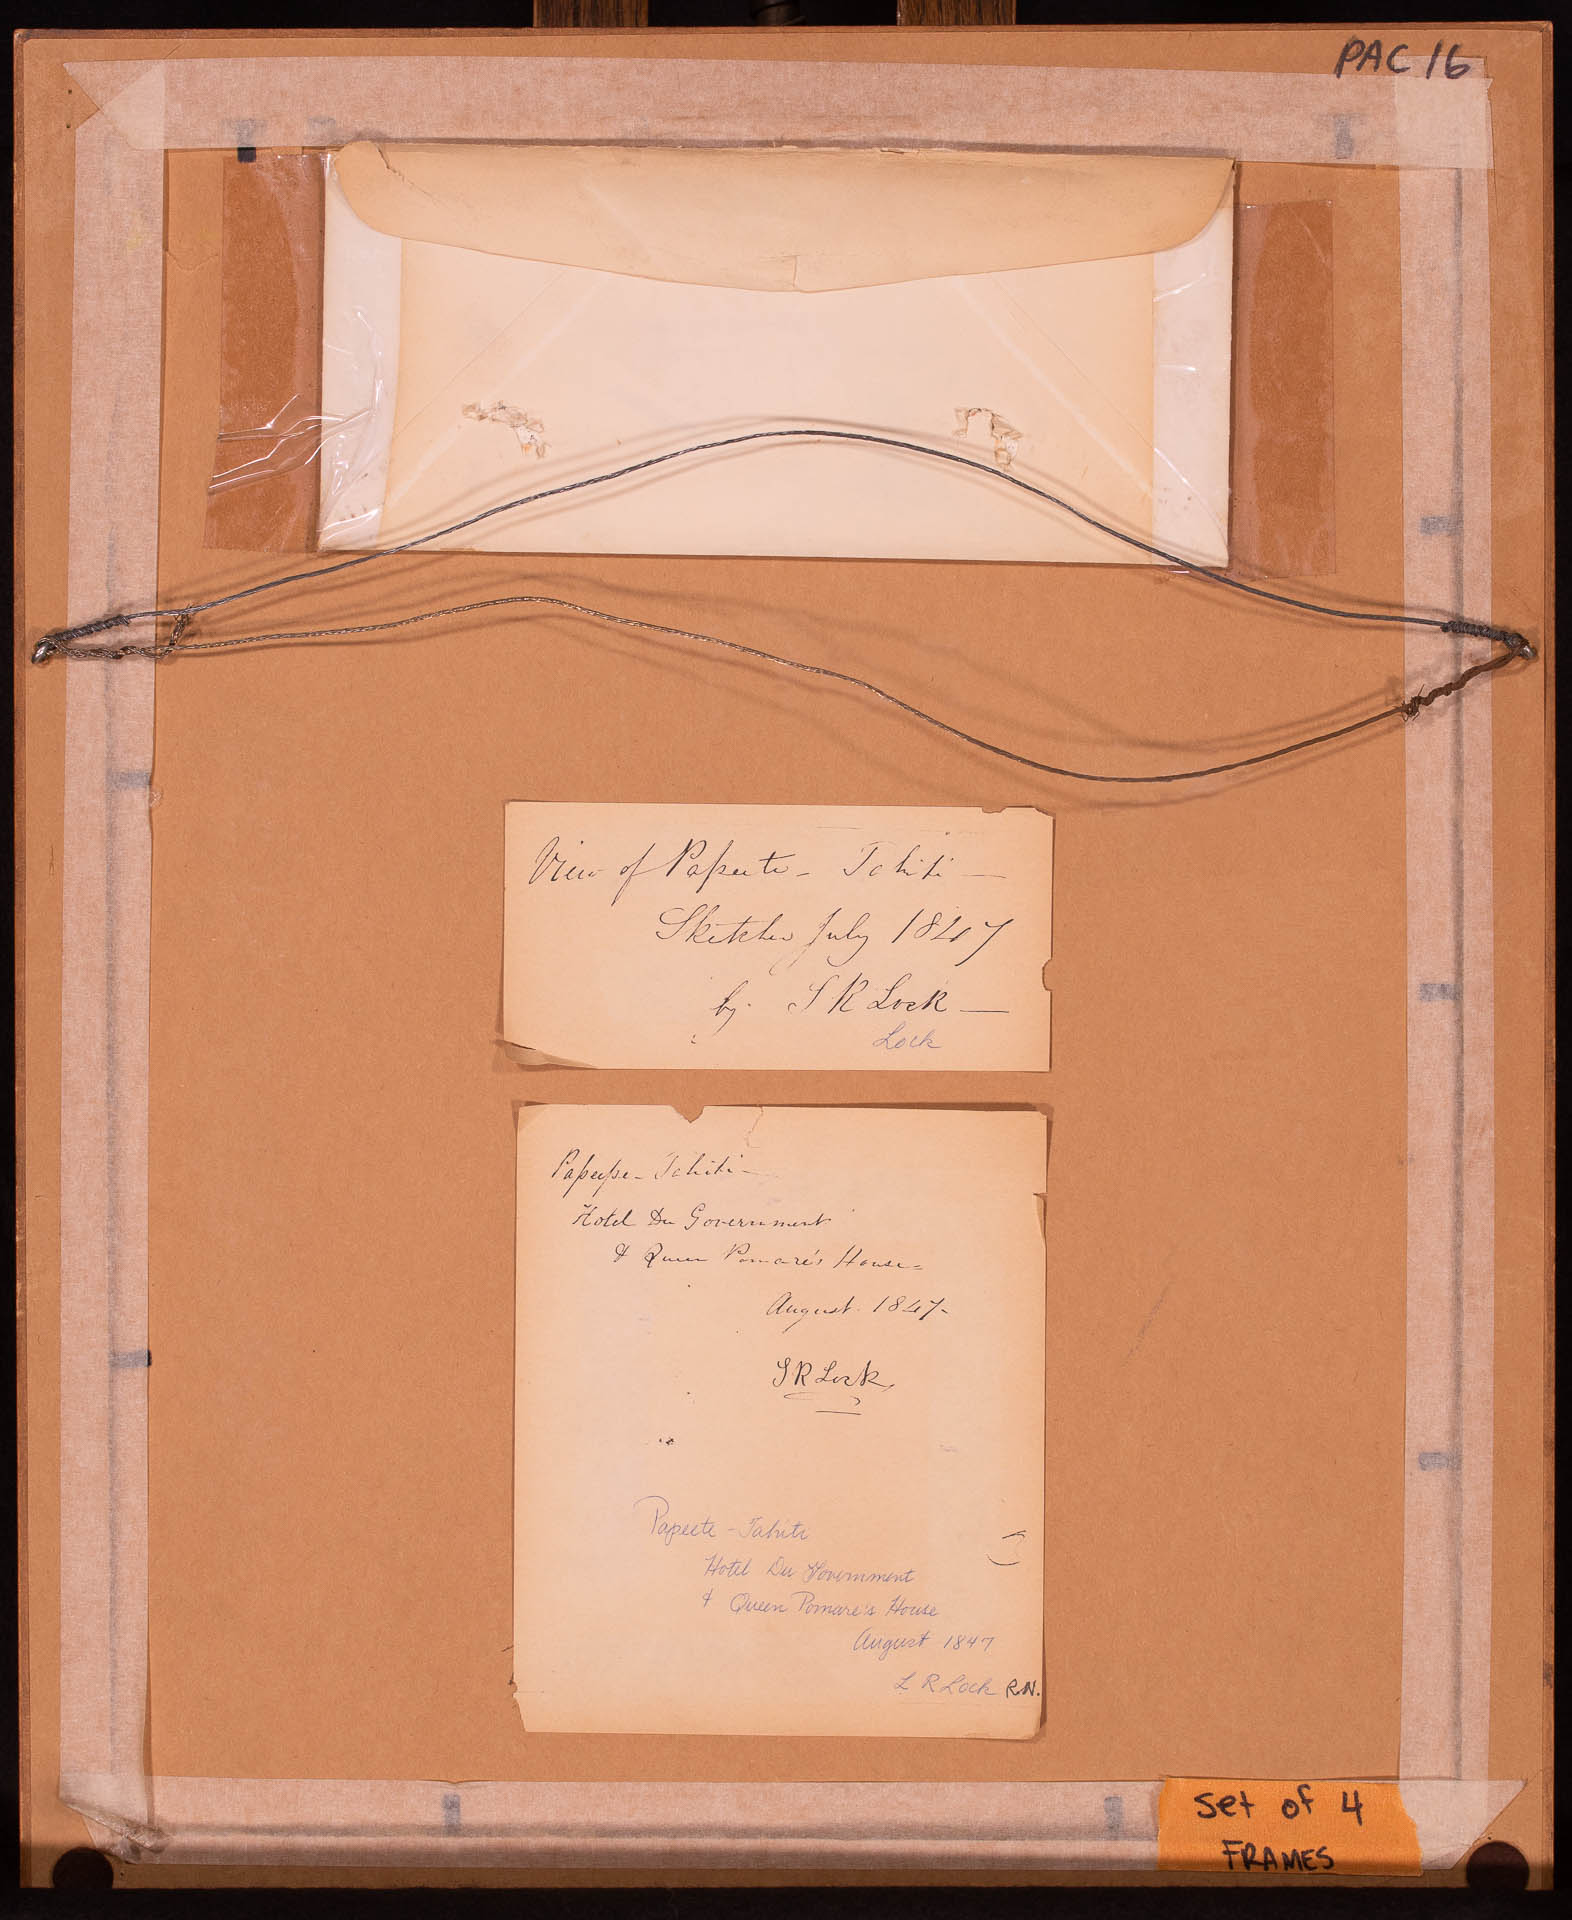 PAC 16
View of Papeete - Tahiti —
Sketched July 1847
by S R Lock —
Lock
Papeepe - Tahiti -
Hotel Du Government
& Queen Pomare's House -
August 1847 -
S R Lock
Papeete - Tahiti
Hotel Du Government
& Queen Pomare's House
August 1847
L R Lock R.N.
Set of 4
FRAMES